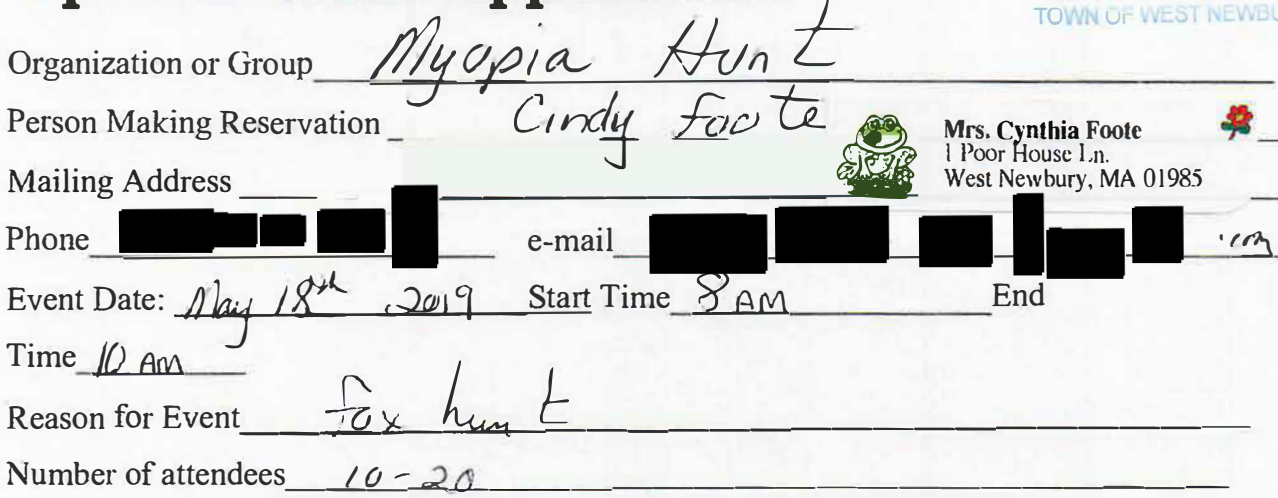 TOWN OF WEST
Organization or Group Myopia Hunt
Person Making Reservation Cindy Foote
Mrs. Cynthia Foote
1 Poor House Ln.
West Newbury, MA 01985
Mailing Address
Phone e-mail .com
Event Date: May 18th, 2019 Start Time 8 AM End
Time 10 AM
Reason for Event Fox hunt
Number of attendees 10-20